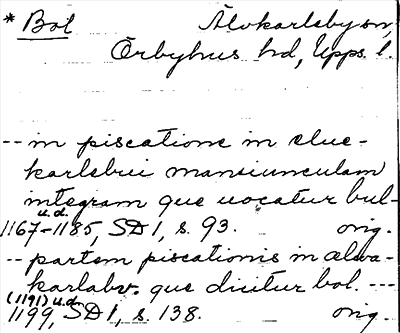 * Bol Älvkarleby sn,
Örbyhus hd, Upps. l.
-- in piscatione in elue-
karlebui mansiunculam
integram que uocatur bul-
u.d.
1167-1185, SD 1, s. 93. orig.
-- partem piscationis in alua-
karlabv. que dicitur bol. ---
(1191) u.d.
1199, SD 1, s. 138. orig.